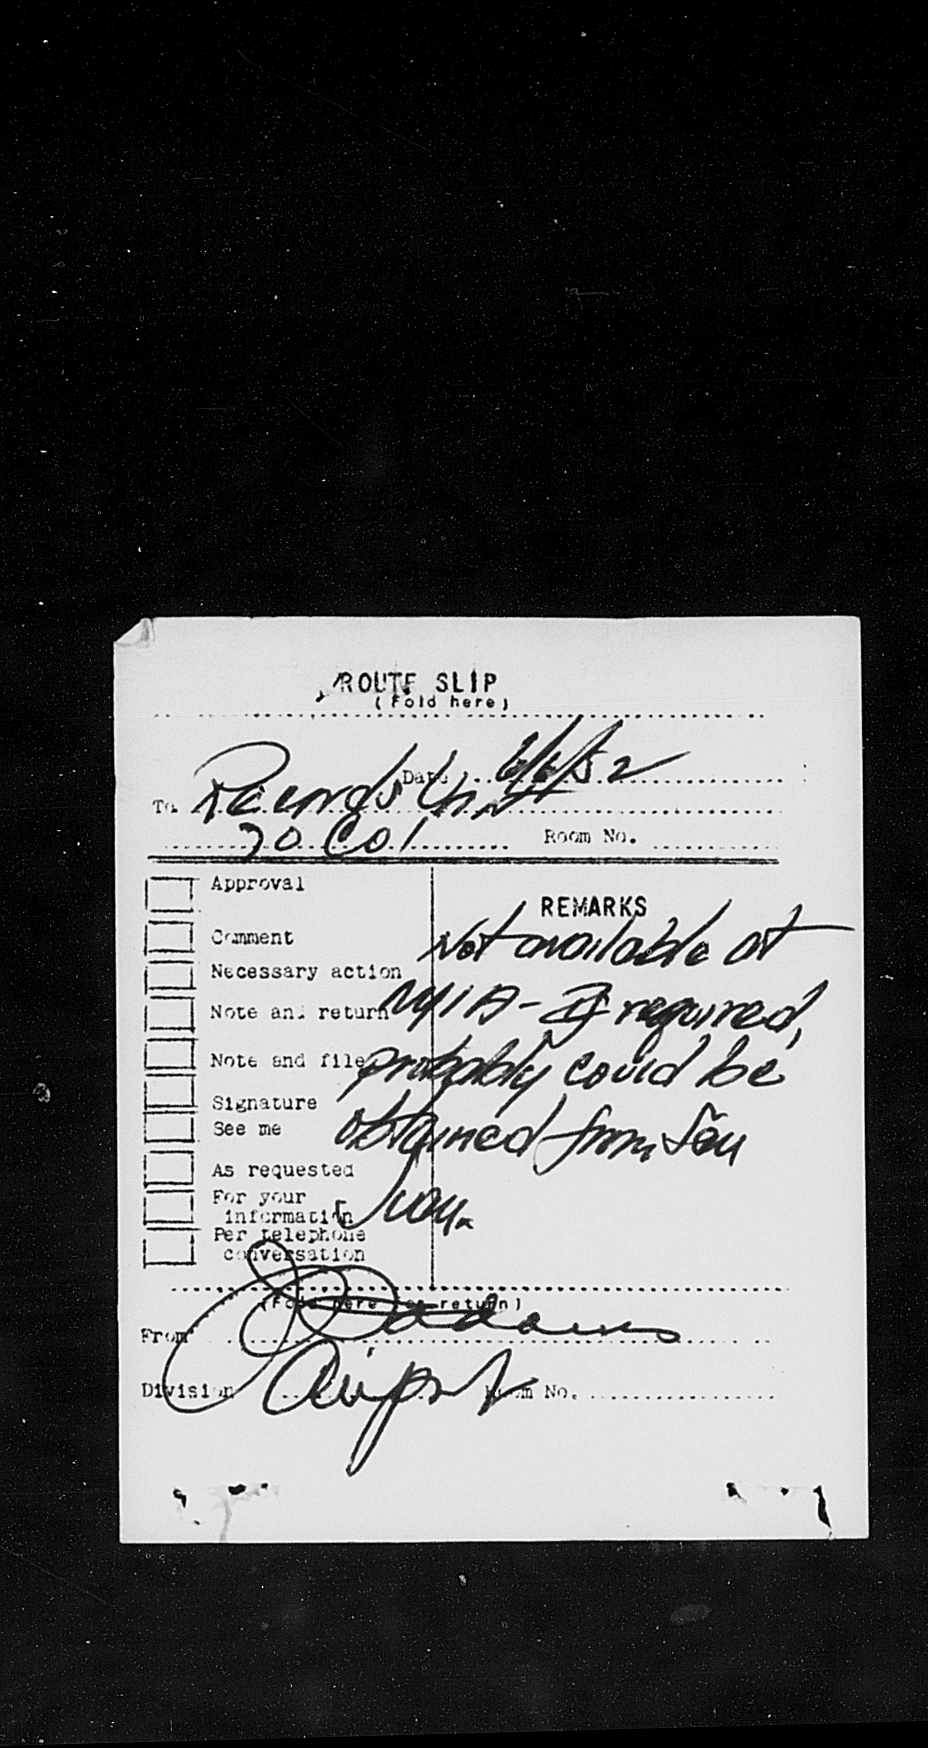 ROUTE SLIP
(Fold here)
Date 6/6/52
To Records Unit
70 Col Room No.
Approval
REMARKS
Not available at
Comment
Necessary action
NYIA - If required,
Note and return
probably could be
Note and file
obtained from
Signature
See me
As requested
For your
information
Per telephone
conversation
(Fold here for return)
From Adams
Division Airport Room No.